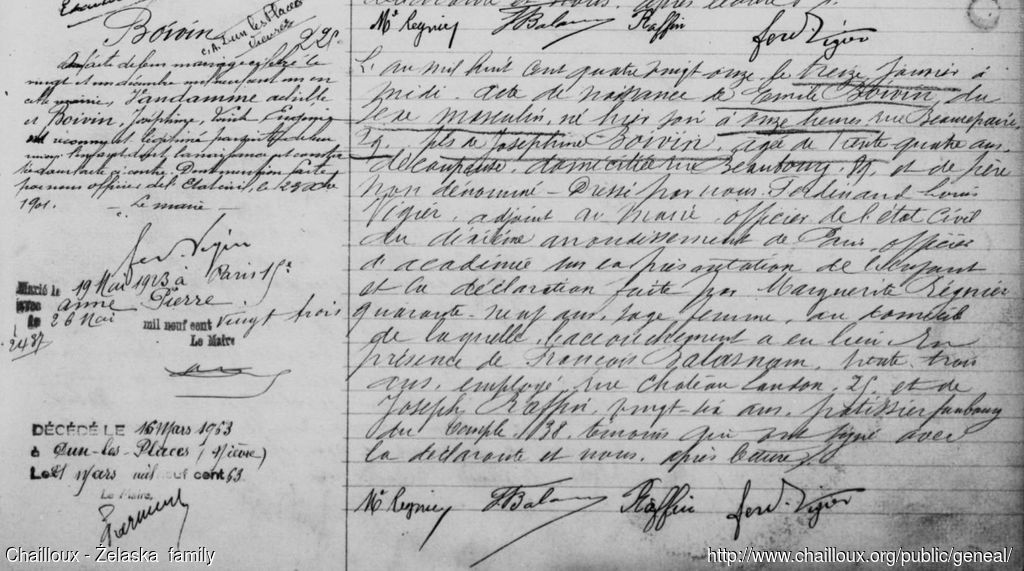 Boivin
225.
Par acte de leur mariage célébré le
vingt et un décembre mil neuf cent un en
cette mairie, Vandamme achille
et Boivin, Joséphine,
ont reconnu et légitimé
mention faite
par nous officier de l'Etat civil, le 23
1901. - Le maire -
ferd. Vigier
Marié le 19 Mai 1923 à Paris 15e
avec anne Pierre
Le 26 Mai mil neuf cent vingt trois
Le Maire
DÉCÉDÉ LE 16 Mars 1963
à Dun-les-Places (Nièvre)
Le 21 Mars mil neuf cent 63
Le Maire,
Me Regnier Raffin ferd. Vigier
L'an mil huit cent quatre vingt onze, le treize Janvier à
midi. acte de naissance de Emile Boivin, du
sexe masculin, né hier soir à onze heures, rue Beaurepaire,
29. fils de Joséphine Boivin, agée de trente quatre ans,
découpeuse, domiciliée rue Beaubourg, 89, et de père
non dénommé - Dressé par nous, Ferdinand Louis
Vigier, adjoint au maire, officier de l'état civil
du dixième arrondissement de Paris, officier
d'académie sur la présentation de l'enfant
et la déclaration faite par Marguerite Régnier
quarante-neuf ans, sage femme, au domicile
de laquelle l'accouchement a eu lieu. En
présence de François trente-trois
ans, employé, rue Chateau Landon, 25, et de
Joseph Raffin, vingt-six ans, patissier faubourg
du Temple, 138, témoins qui ont signé avec
la déclarante et nous, après lecture.
Me Regnier Raffin ferd. Vigier
Chailloux - Želaska family
http://www.chailloux.org/public/geneal/